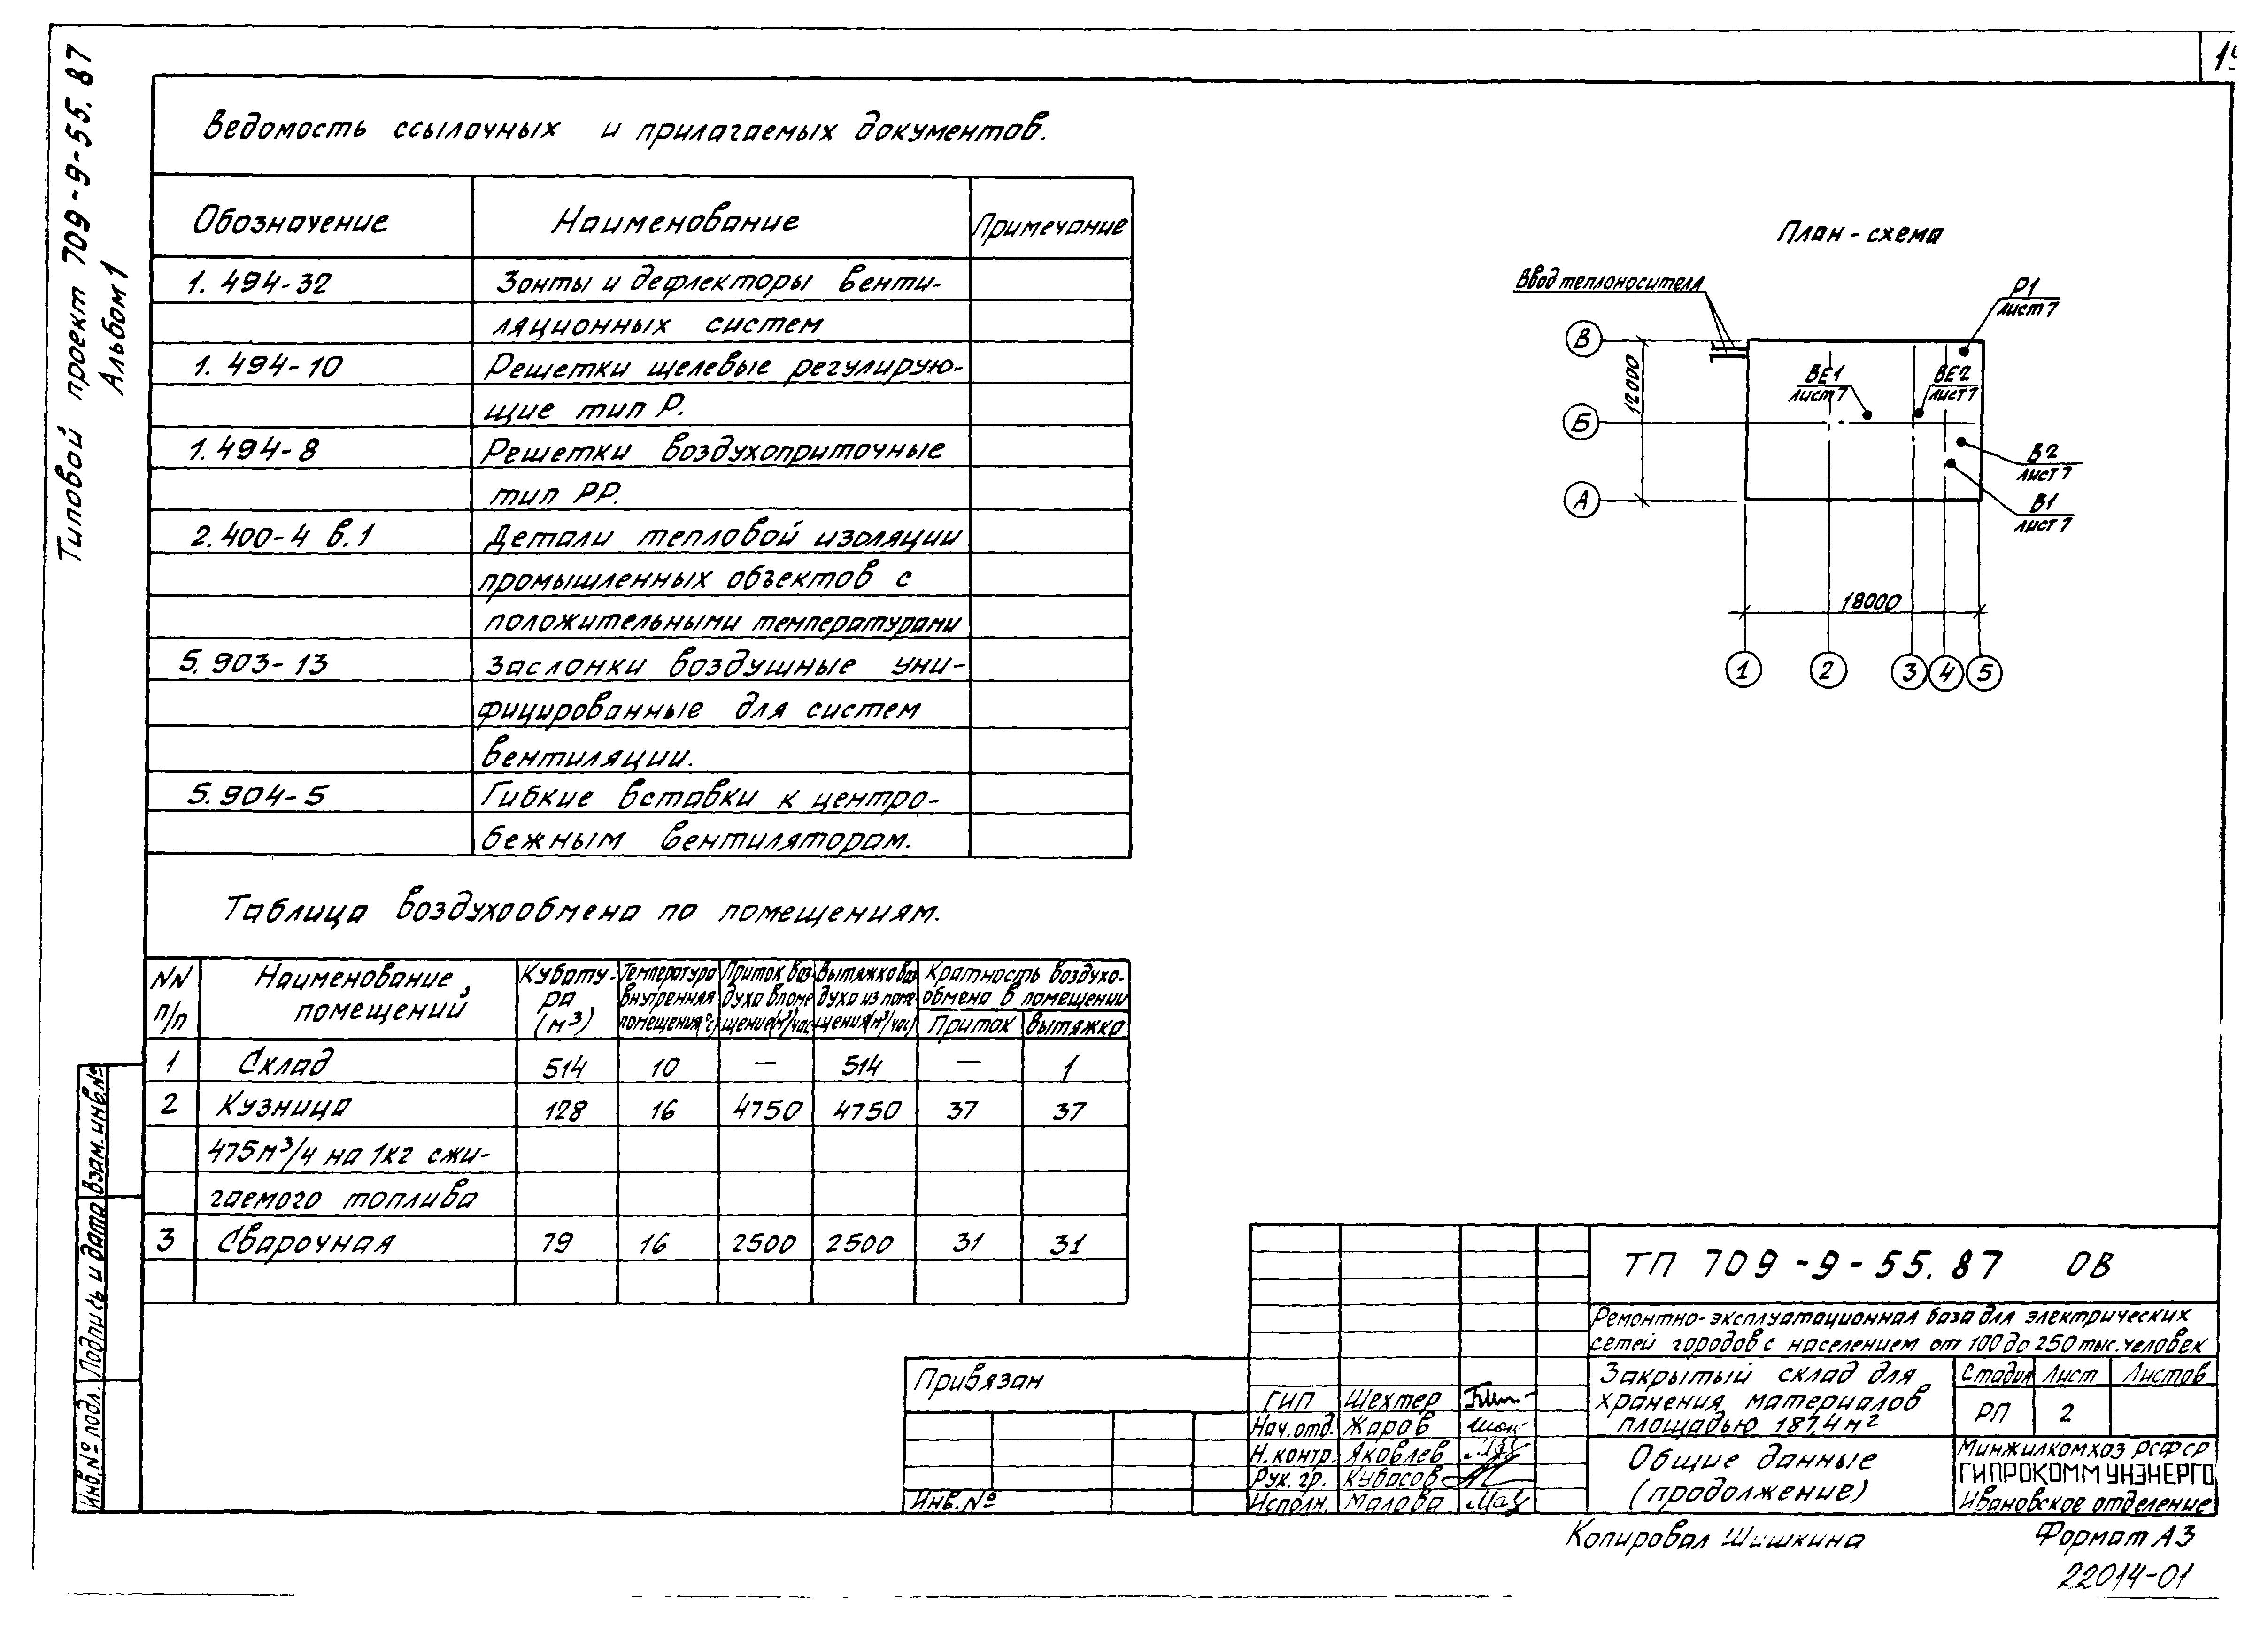 Типовой проект 709-9-55.87
Альбом 1
Ведомость ссылочных и прилагаемых документов.
Обозначение Наименование Примечание
1.494-32 Зонты и дефлекторы венти-
ляционных систем
1.494-10 Решетки щелевые регулирую-
щие тип Р.
1.494-8 Решетки воздухоприточные
тип РР.
2.400-4 в.1 Детали тепловой изоляции
промышленных объектов с
положительными температурами
5.903-13 Заслонки воздушные уни-
фицированные для систем
вентиляции.
5.904-5 Гибкие вставки к центро-
бежным вентиляторам.
План-схема
Ввод теплоносителя
Р1
лист 7
ВЕ1
лист 7
ВЕ2
лист 7
В2
лист 7
В1
лист 7
В
Б
А
12000
18000
1 2 3 4 5
Таблица воздухообмена по помещениям.
NN
п/п
Наименование
помещений
Кубату-
ра
(м³)
Температура
внутренняя
помещения (°с)
Приток воз-
духа в поме-
щение (м³/час)
Вытяжка воз-
духа из поме-
щения (м³/час)
Кратность воздухо-
обмена в помещении
Приток Вытяжка
1 Склад 514 10 — 514 — 1
2 Кузница 128 16 4750 4750 37 37
475 м³/ч на 1кг сжи-
гаемого топлива
3 Сварочная 79 16 2500 2500 31 31
Взам. инв.№
Подпись и дата
Инв.№ подл.
Привязан
Инв.№
ГИП Шехтер
Нач.отд. Жаров
Н.контр. Яковлев
Рук. гр. Кубасов
Исполн. Малова
ТП 709-9-55.87 ОВ
Ремонтно-эксплуатационная база для электрических
сетей городов с населением от 100 до 250 тыс. человек
Закрытый склад для
хранения материалов
площадью 187,4 м²
Стадия Лист Листов
РП 2
Общие данные
(продолжение)
Минжилкомхоз РСФСР
ГИПРОКОММУНЭНЕРГО
Ивановское отделение
Копировал Шишкина Формат А3
22014-01